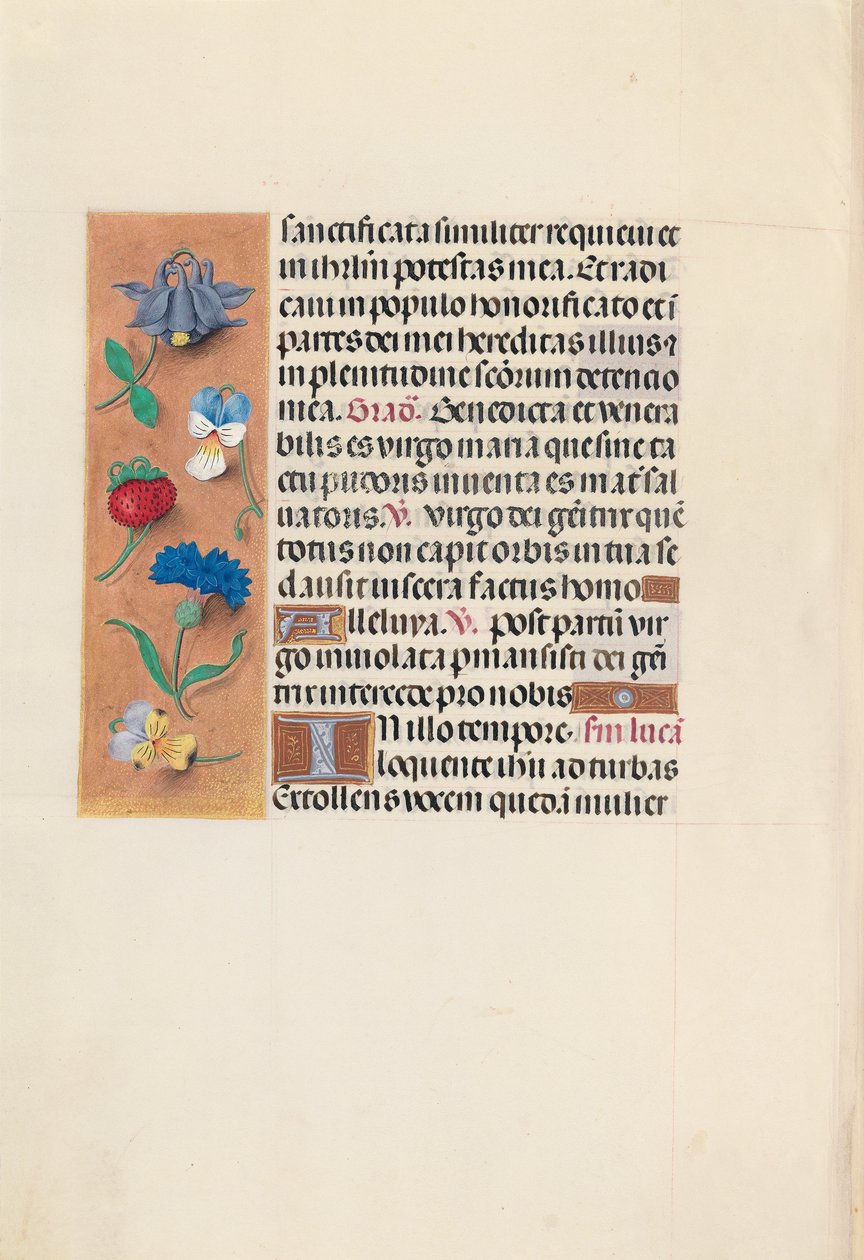 sanctificata similiter requieui et
in ihrl̄m potestas mea. Et radi
caui in populo honorificato et ī
partes dei mei hereditas illius ⁊
in plenitudine sc̄orum detencio
mea. Grad̄. Benedicta et venera
bilis es virgo maria que sine ta
ctu pudoris inuenta es mat̄ sal
uatoris. V̄. Virgo dei gēitrix quē
totus non capit orbis in tua se
clausit uiscera factus homo
Alleluya. V̄. post partū vir
go inuiolata pmansisti dei gēi
trix intercede pro nobis
IN illo tempore. sm lucā
loquente ihū ad turbas
Extollens vocem quedā mulier